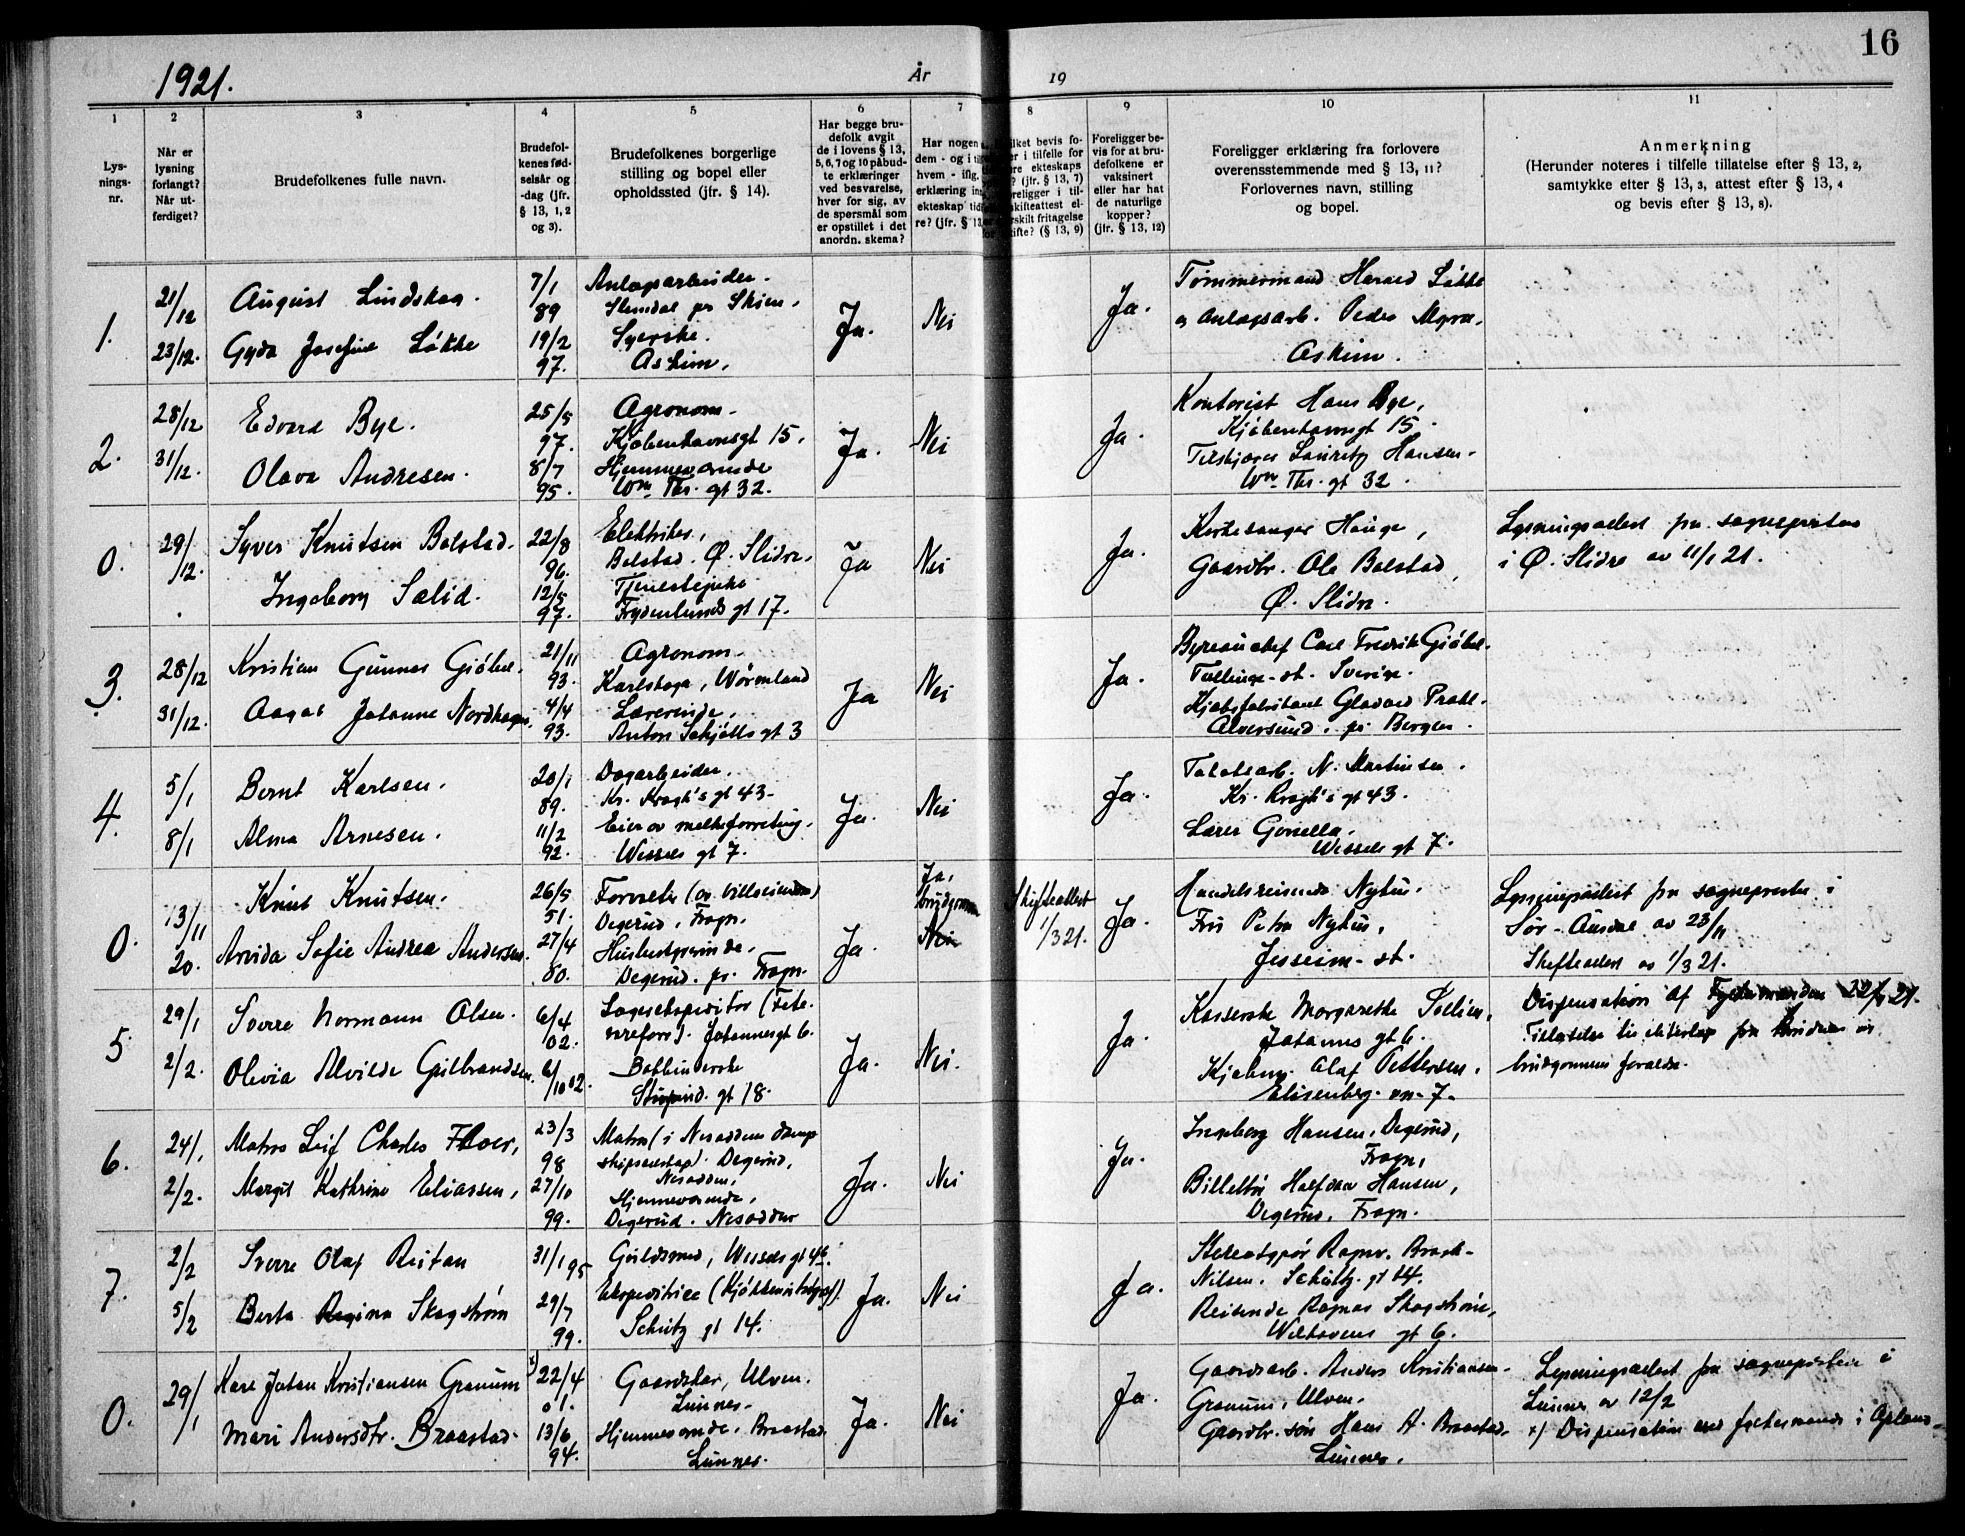 16
1921.
År
19
1
2
3
4
5
6
7
8
9
10
11
Lys-
nings-
nr.
Når er
lysning
forlangt?
Når ut-
ferdiget?
Brudefolkenes fulle navn.
Brudefol-
kenes fød-
selsår og
-dag (jfr.
§ 13, 1, 2
og 3).
Brudefolkenes borgerlige
stilling og bopel eller
opholdssted (jfr. § 14).
Har begge bru-
defolk avgit
de i lovens § 13,
5, 6, 7 og 10 påbud-
te erklæringer
ved besvarelse,
hver for sig, av
de spørsmål som
er opstillet i det
anordn. skema?
Har nogen
dem - og i
hvem - ifig.
erklæring
ekteskap
re? (jfr. § 13
bevis fo-
er i tilfelle for
ekteskaps
? (jfr. § 13, 7)
i til-
skifteattest el-
fritagelse
(§ 13, 9)
Foreligger be-
vis for at bru-
defolkene er
vaksinert
eller har hat
de naturlige
kopper?
(jfr. § 13, 12)
Foreligger erklæring fra forlovere
overensstemmende med § 13, 11?
Forlovernes navn, stilling
og bopel.
Anmerkning
(Herunder noteres i tilfelle tillatelse efter § 13, 2,
samtykke efter § 13, 3, attest efter § 13, 4
og bevis efter § 13, 8).
1.
21/12
23/12.
August Lindskog.
Gyda Josefine Løkke
7/1
89
19/2
97.
Anlægsarbeider.
Slemdal pr Skien.
Syerske.
Askim.
Ja.
Nei
Ja.
Tømmermand Harald Løkke
og anlægsarb. Peder Myra.
Askim.
2.
28/12
31/12.
Edvard Bye.
Olava Andresen.
25/5
97.
8/7
95.
Agronom.
Kjøbenhavnsgt 15.
Hjemmeværende
Wm Thr. gt 32.
Ja.
Nei
Ja.
Kontorist Hans Bye,
Kjøbenhavnsgt 15.
Lauritz Hansen.
Wm Thr. gt 32.
0.
29/12.
Syver Knutsen Bolstad.
Ingeborg Sælid.
22/8
96.
12/5
97.
Elektriker,
Bolstad. Ø. Slidre.
Tjenestepike
Frydenlunds gt 17.
Ja
Nei
Ja.
Kirkesanger Hauge,
Gaardbr. Ole Bolstad,
Ø. Slidre.
Lysningsattest fra sogneprsten
i Ø. Slidre av 11/1 21.
3.
28/12
31/12.
Kristian Gunnar Gjøbel.
Aagot Johanne Nordhagen.
21/11
93.
4/4
93.
Agronom.
Karlskoga, Wärmland
Lærerinde,
Anton Schjøtts gt 3
Ja
Nei
Ja.
Byreauchef Carl Fredrik Gjøbel.
Tullinge st. Sverige.
Alversund. pr Bergen.
4.
5/1
8/1
Bernt Karlsen.
Alma Arnesen.
20/1
89.
11/2
92.
Dagarbeider.
Kr. Kragh's gt 43.
Eier av melkeforretning.
Wessels gt 7.
Ja.
Nei
Ja.
N. Martinsen.
Kr. Kragh's gt 43.
Lærer
Wessels gt 7.
0.
13/11
20.
Knut Knutsen.
Arvida Sofie Andrea Andersen.
26/5
51.
27/4
80.
Degerud. Frogn.
Husbestyrerinde.
Degerud. pr. Frogn.
Ja.
Ja,
brudgommen
Nei
Skifteattest
1/3 21.
Ja.
Handelsreisende Nyhus.
Fru Petra Nyhus,
Jessheim st.
Lysningsattest fra sogneprsten i
Sør-Aurdal av 23/11
Skifteattest av 1/3 21.
5.
29/1
2/2.
Sverre Normann Olsen.
Olivia Alvilde Gulbrandsen.
6/4
02.
6/10 02.
Lagerekspeditør (Fete-
vareforr.). Johannesgt 6.
Bobbinerske
gt 18.
Ja.
Nei.
Ja.
Kasserske Margarethe
Johannes gt 6.
Kjøbm. Olaf Pettersen.
Elisenberg. vn. 7.
Dispensation af Fylkesmanden 21.
Tillatelse til ekteskap fra brudens og
brudgommens foreldre.
6.
24/1
2/2.
Matros Leif Charles Floer,
Margit Kathrine Eliassen,
23/3
98
27/10
99.
Matros (i Nesoddens damp-
skipselskap). Degerud,
Nesodden,
Hjemmeværende,
Degerud. Nesodden
Ja.
Nei
Ja.
Ingeborg Hansen. Degerud,
Frogn,
Billettør Halfdan Hansen,
Degerud, Frogn.
7.
2/2
5/2
Sverre Olaf Reitan
Berta Regina Skogstrøm
31/1 95
29/7
99.
Guldsmed, Wessels gt 4b.
Ekspeditrice
Schultz gt 14.
Ja.
Nei
Ja.
Stereotypør Ragnv. Brock-
Nilsen. Schultz gt 14.
Reisende Ragnar Skogstrøm,
Welhavens gt 6.
0.
29/1
Karl Johan Kristiansen Granum
Mari Andersdtr. Braastad.
x) 22/4
01.
13/6
94.
Gaardbr, Ulven.
Lunner.
Hjemmeværende. Braastad
Lunner.
Ja.
Nei
Ja.
Gaardarb. Anders Kristiansen
Granum, Ulven.
Gaardbr. søn Hans A. Braastad,
Lunner.
Lysningsattest fra sogneprsten i
Lunner av 12/2
x) Dispensation